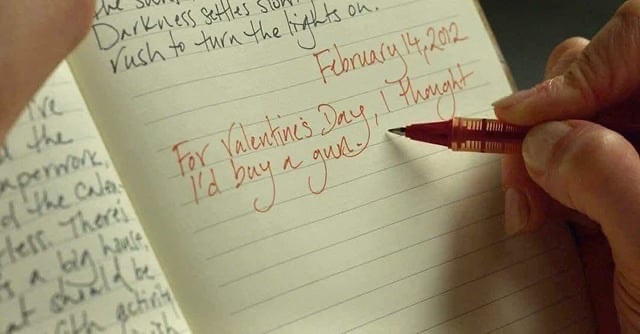 the
Darkness settles
rush to turn the lights on.
February 14, 2012
For Valentine's Day, I thought
I'd buy a gun.
I've
the
paperwork,
of the
There's
a big house,
should be
with